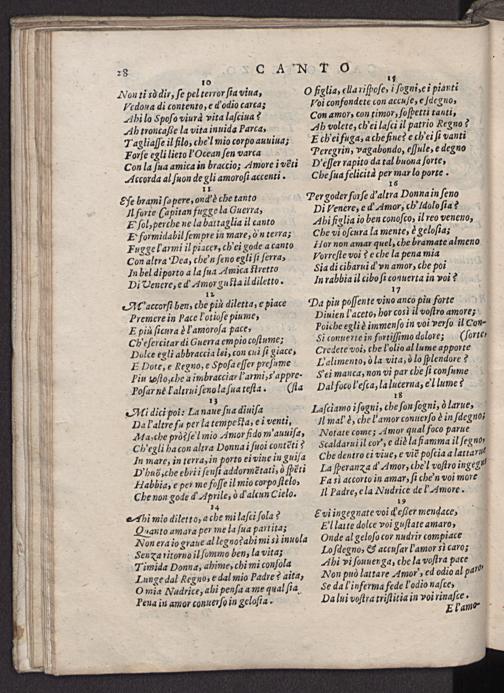 28
CANTO
10
Non ti sò dir, se pel terror sia viua,
Vedoua di contento, e d'odio carca;
Ahi lo Sposo viurà vita lasciua?
Ah troncasse la vita inuida Parca,
Tagliasse il filo, che'l mio corpo auuiua;
Forse egli lieto l'Ocean sen varca
Con la sua amica in braccio; Amore i vẽti
Accorda al suon de gli amorosi accenti.
11
Ese brami sapere, ond'è che tanto
Il forte Capitan fugge la Guerra,
E' sol, perche ne la battaglia il canto
E' formidabil sempre in mare, ò n terra;
Fugge l'armi il piacer, ch'ei gode a canto
Con altra Dea, che'n seno egli si serra,
In bel diporto a la sua Amica stretto
Di Venere, e d'Amor gusta il diletto.
12
M'accorsi ben, che più diletta, e piace
Premere in Pace l'otiose piume,
E più sicura è l'amorosa pace,
Ch'esercitar di Guerra empio costume;
Dolce egli abbraccia lei, con cui si giace,
E Dote, e Regno, e Sposa esser presume
Piu tosto, che a imbracciar l'armi, s'appre-
Posar nè l'altrui seno la sua testa. (sta
13
Mi dici poi: La naue sua diuisa
Da l'altre fu per la tempesta, e i venti,
Ma, che prò? se'l mio Amor fido m'auuisa,
Ch'egli ha con altra Donna i suoi contẽti?
In mare, in terra, in porto ei viue in guisa
D'huõ, che ebri i sensi addormẽtati, ò spẽti
Habbia, e per me fosse il mio corpo stelo,
Che non gode d'Aprile, ò d'alcun Cielo.
14
Ahi mio diletto, a che mi lasci sola?
Quanto amara per me la sua partita;
Non era io graue al legno? ahi mi s'inuola
Senza ritorno il sommo ben, la vita;
Timida Donna, ahime, chi mi consola
Lunge dal Regno, e dal mio Padre? aita,
O mia Nudrice, ahi pensa a me qual sia
Pena in amor conuerso in gelosia.
15
O figlia, ella rispose, i sogni, e i pianti
Voi confondete con accuse, e sdegno,
Con amor, con timor, sospetti tanti,
Ah volete, ch'ei lasci il patrio Regno?
E ch'ei fuga, a che fine? e ch'ei si vanti
Peregrin, vagabondo, essule, e degno
D'esser rapito da tal buona sorte,
Che sua felicità per mar lo porte.
16
Per goder forse d'altra Donna in seno
Di Venere, e d'Amor, ch'Idolo sia?
Ahi figlia io ben conosco, il reo veneno,
Che vi oscura la mente, è gelosia;
Hor non amar quel, che bramate almeno
Vorreste voi? e che la pena mia
Sia di cibarui d'vn amor, che poi
In rabbia il cibo si conuerta in voi?
17
Da piu possente vino anco piu forte
Diuien l'aceto, hor così il vostro amore;
Poiche egli è immenso in voi verso il Con-
Si conuerte in fortissimo dolore; (sorte,
Credete voi, che l'olio al lume apporte
L'alimento, ò la vita, ò lo splendore?
S'ei manca, non vi par che si consume
Dal foco l'esca, la lucerna, e'l lume?
18
Lasciamo i sogni, che son sogni, ò larue,
Il mal' è, che l'amor conuerso è in sdegno;
Notate come; Amor qual foco parue
Scaldarui il cor', e diè la fiamma il segno,
Che dentro ei viue, e viẽ poscia a lattarne
La speranza d'Amor, che'l vostro ingegno
Fa sì accorto in amar, si che'n voi more
Il Padre, e la Nudrice de l'Amore.
19
E vi ingegnate voi d'esser mendace,
E'l latte dolce voi gustate amaro,
Onde al geloso cor nudrir compiace
Lo sdegno, & accusar l'amor sì caro;
Ahi vi souuenga, che la vostra pace
Non può lattare Amor', ed odio al paro,
Se da l'inferma fede l'odio nasce,
Da lui vostra tristitia in voi rinasce.
E l'amo-